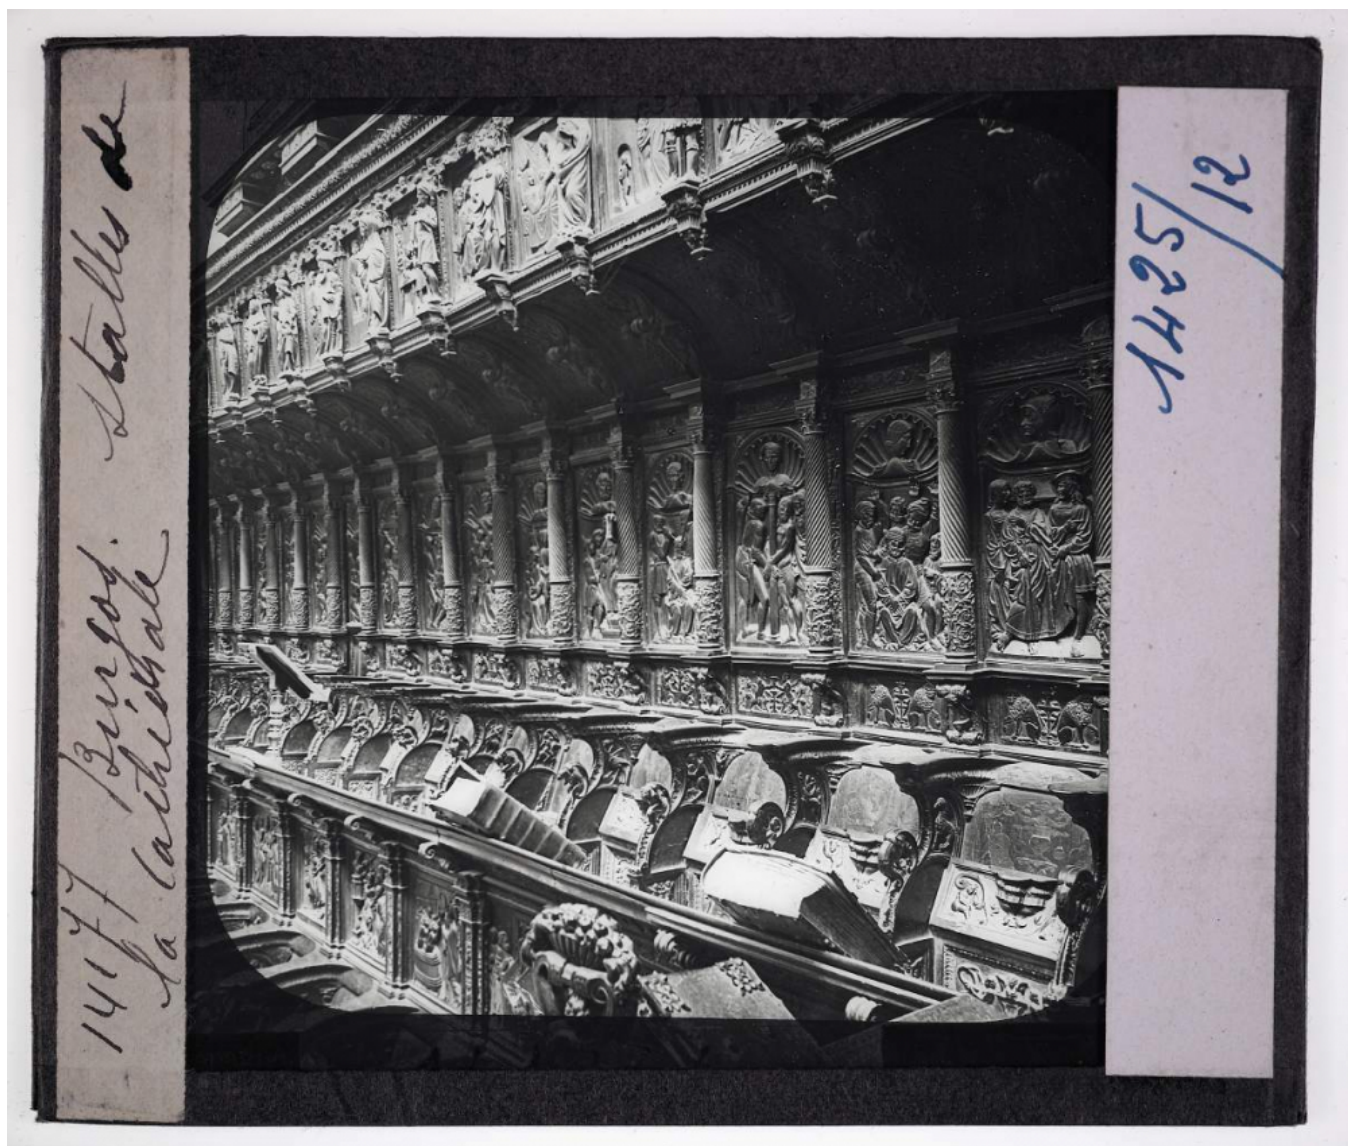 14177 Burgos. stalles de
la Cathédrale
1425/12